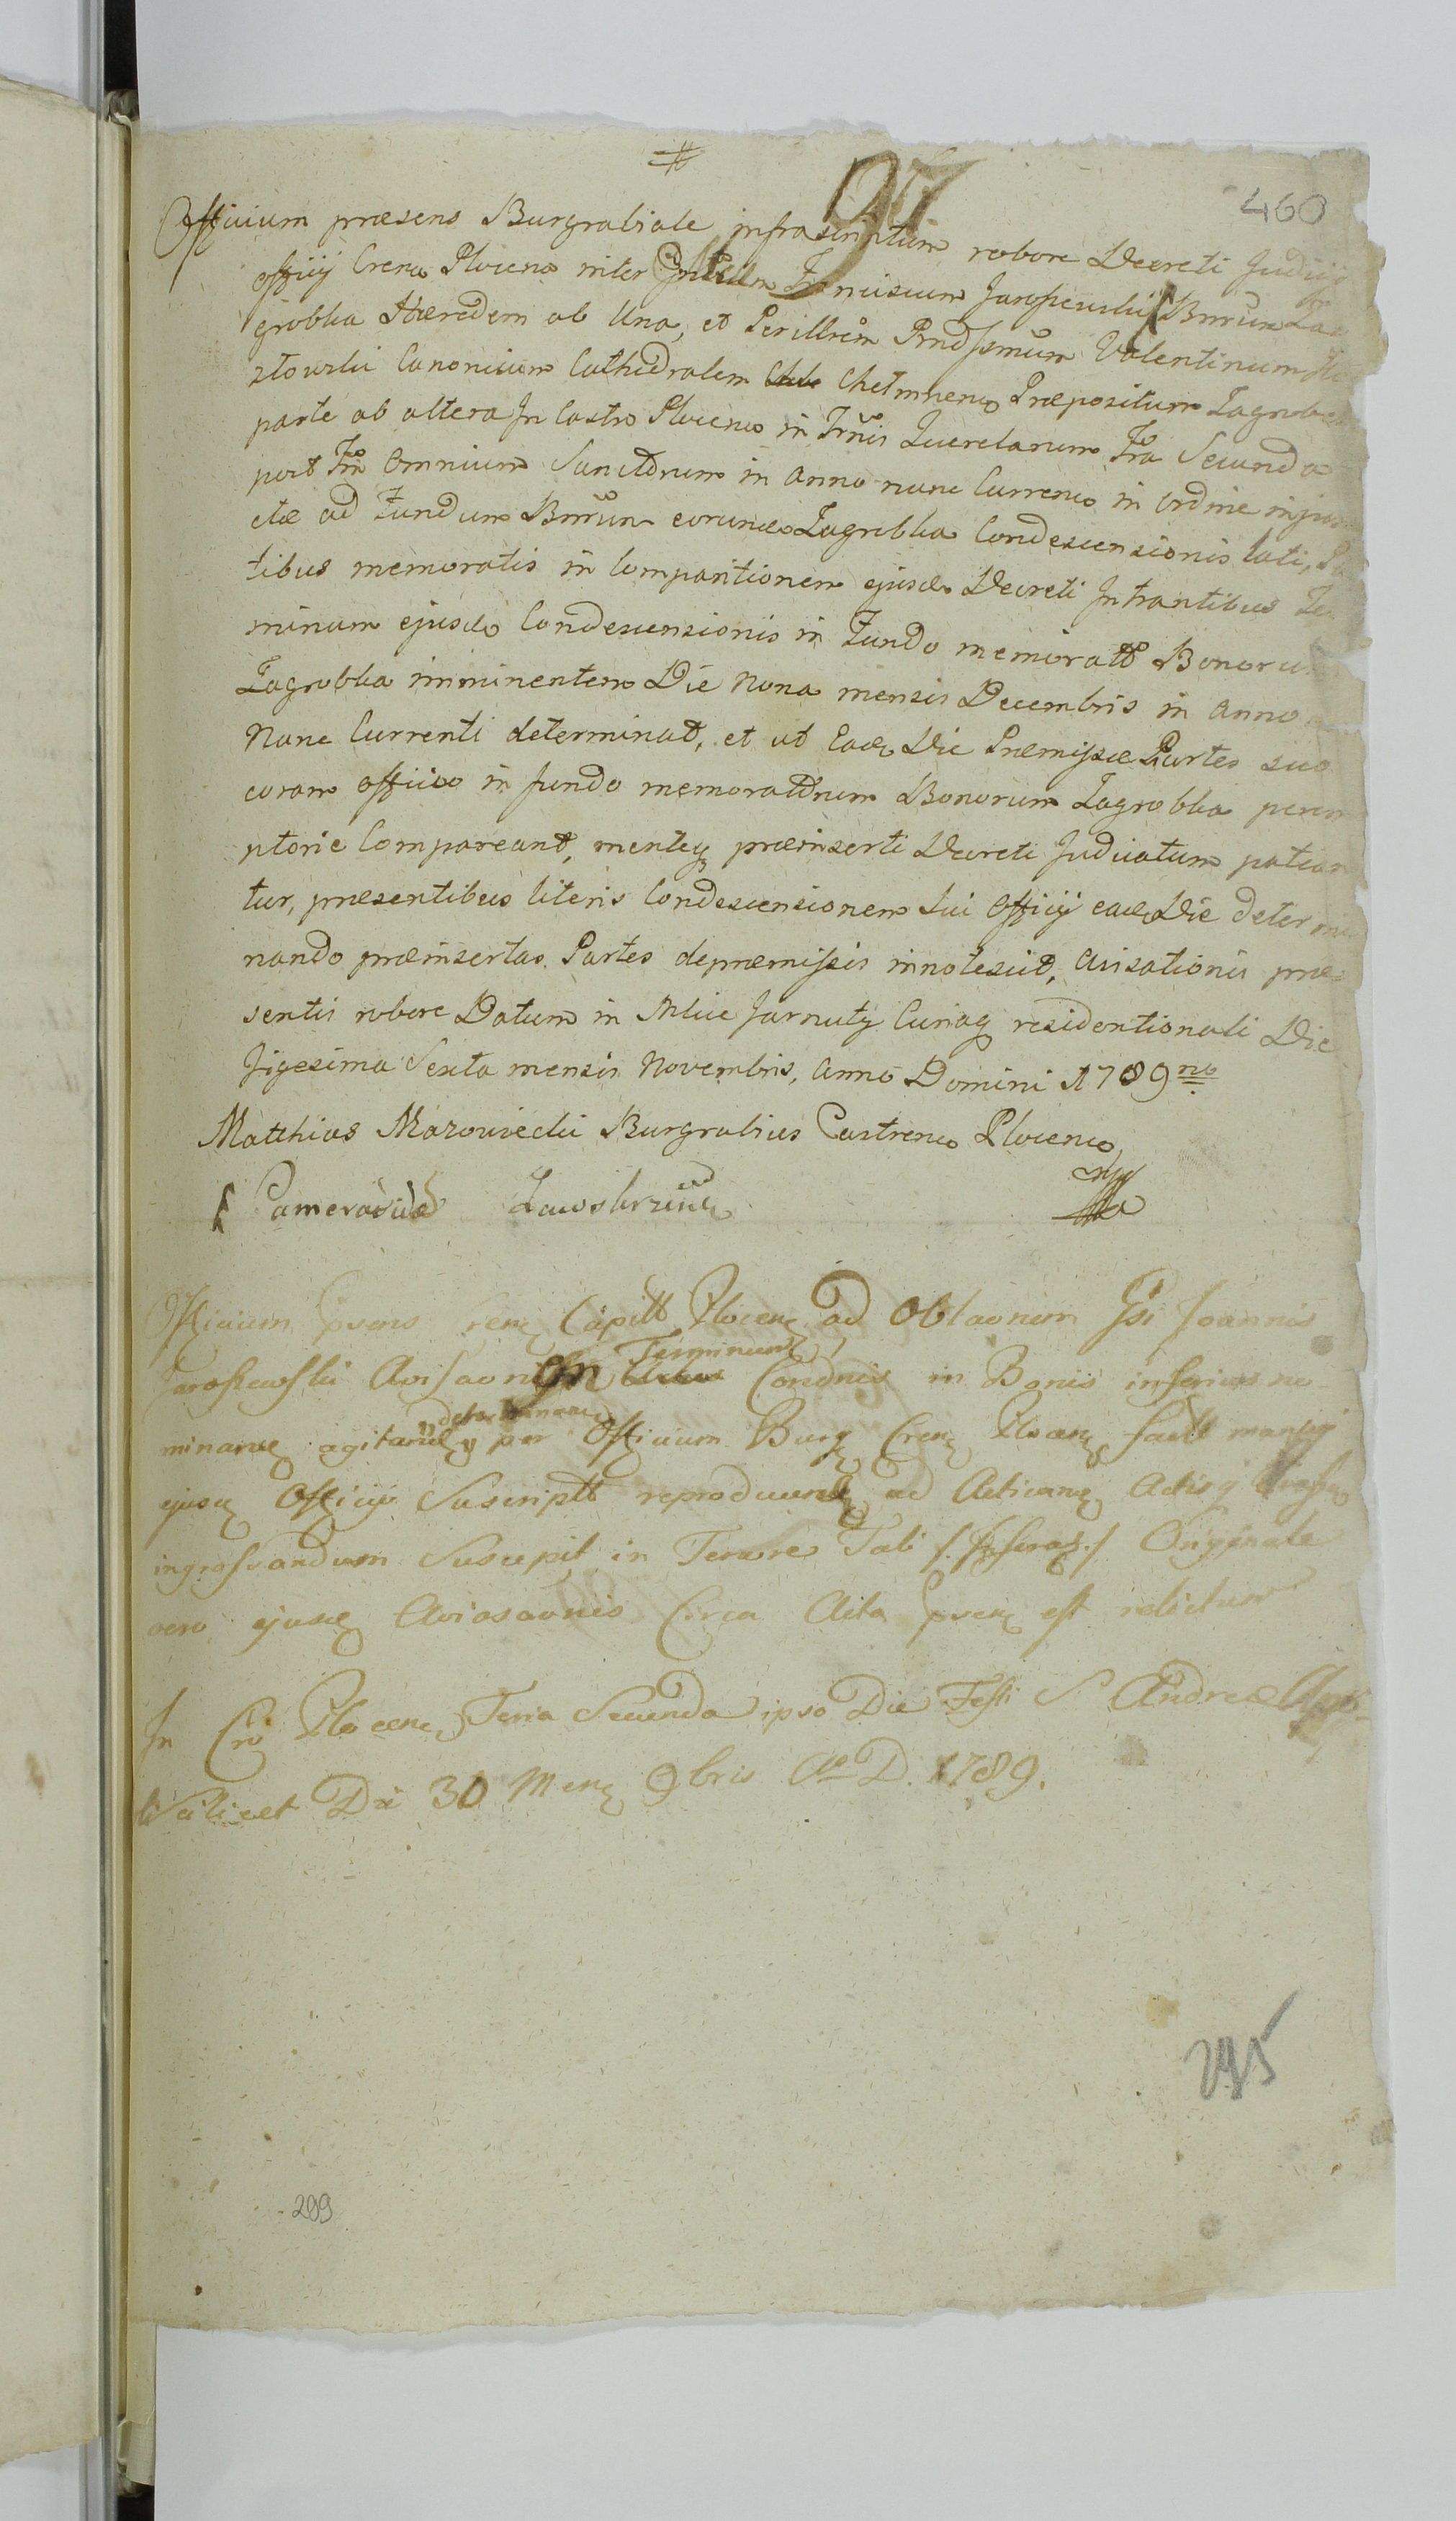 97
460
Officium præsens Burgrabiale infrascriptum robore Decreti Judicij
officij Crens Plocens inter Franciscum Jaroszewski Bnrum Za
grobka Hæredem ab Una, et Perillrem Rndssmum Valentinum
stowski Canonicum Cathedralem Chełmnens Præpositum Zagrob
parte ab altera In Castro Plocens in Trnis Querelarum Fra Secunda
post Ftm Omnium Sanctorum in Anno nunc Currens in ordine
ctæ ad Fundum Bnrum eorund Zagrobka Condescensionis lati,
tibus memoratis in Comparitionem ejusd Decreti Intrantibus Ter
minum ejusd Condescensionis in Fundo memoratt Bonorum
Zagrobka imminentem Die Nona mensis Decembris in Anno
Nunc Currenti determinat, et ut Ead Die Præmissæ Partes suo
coram officio in fundo memorattrum Bonorum Zagrobka perem
ptorie Compareant, menteq præinserti Decreti Judicatum patian
tur, præsentibus literis Condescensionem sui Officij ead Die determi
nando præinsertas Partes de præmissis innotescit, Avisationis præ
sentis robore Datum in Jarnuty Curiaq residentionali Die
Vigesima Sexta mensis Novembris, Anno Domini 1789no
Matthias Mazowiecki Burgrabius Castrens Plocens
Camerarius Zawskrzin
Officium Prsens Crens Capitt Plocens ad Oblaonem Gsi Joannis
Jaroszewski Avisaonis In Terminum Condnis in Bonis inferius no
minand agitand determinand per Officium Burg Crens Plocens factt manuq
ejusd Officij Suscriptt reproducend ad Acticand Actisq
ingrossandum Suscepit in Tenore Tali /.Inserat./ Originale
vero ejusd Aviosaonis Circa Acta prsens est relictum
In Cro Plocens Feria Secunda ipso Die Festi S Andreæ App
Scilicet Die 30 Mens 9bris Ao D. 1789.
295
299